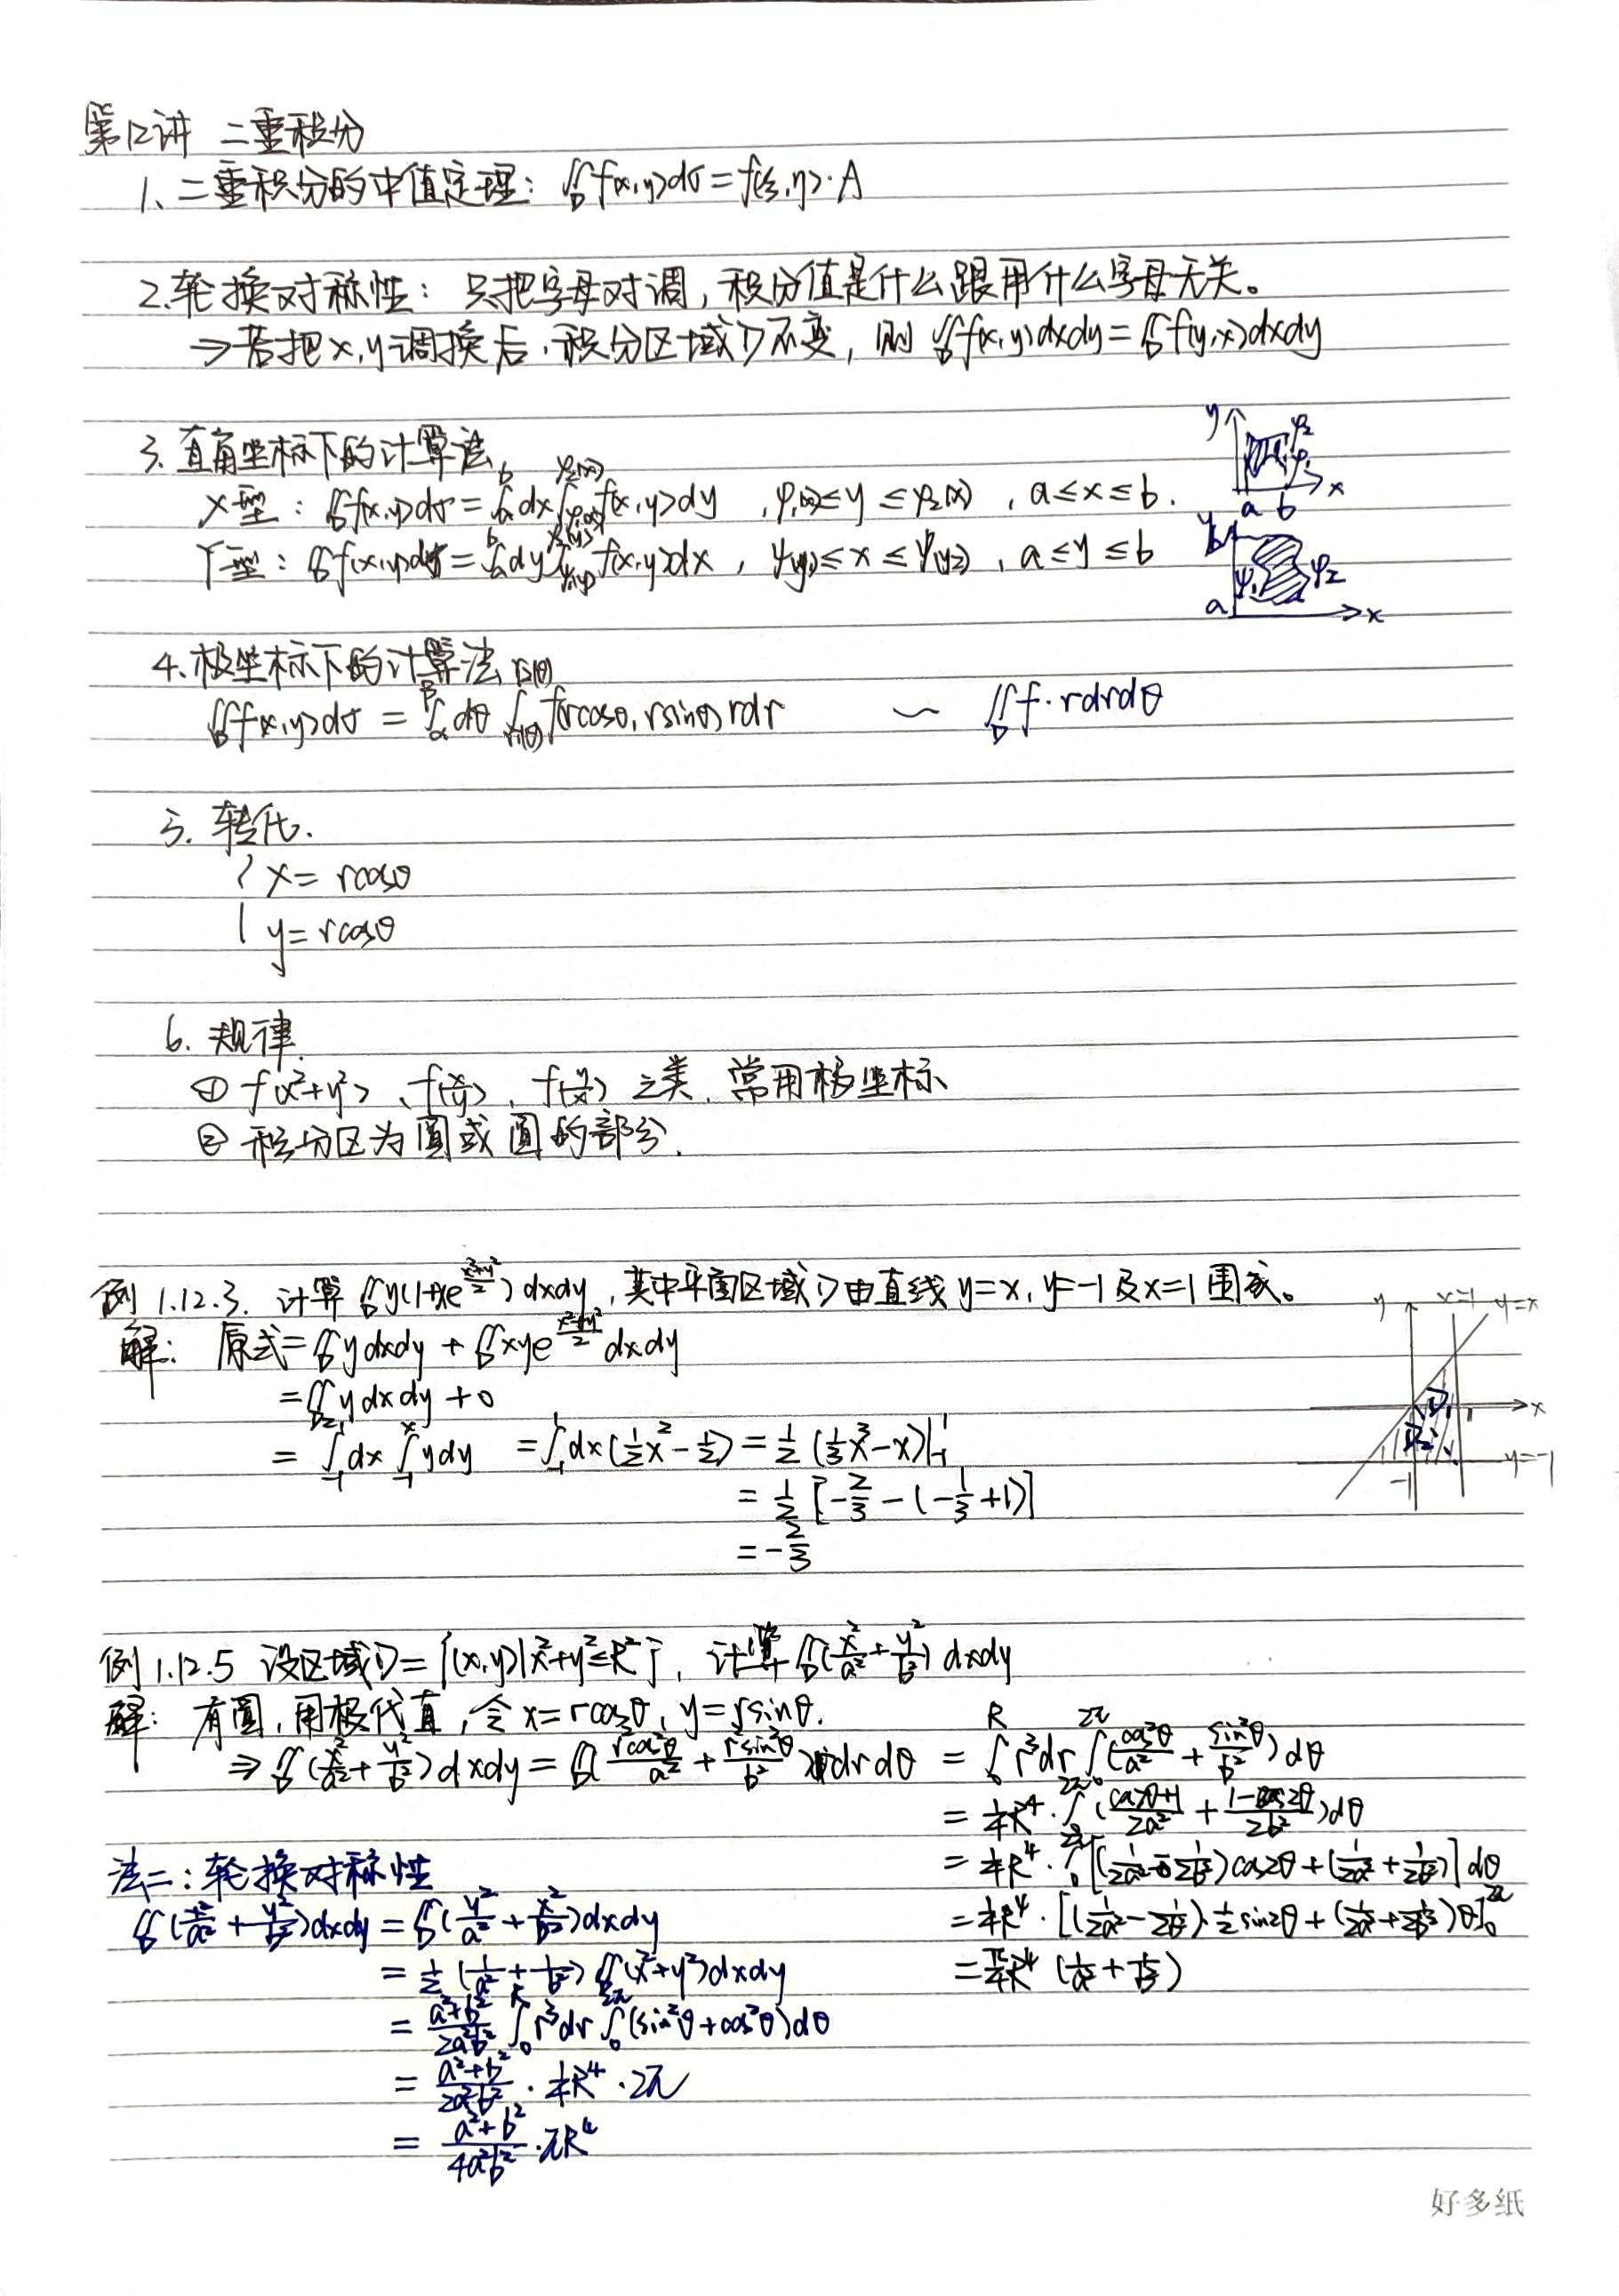 第12讲 二重积分
1、二重积分的中值定理：∬_D f(x,y)dσ = f(ξ,η)·A
2.轮换对称性：只把字母对调，积分值是什么跟用什么字母无关。
⇒若把x,y调换后，积分区域D不变，则 ∬_D f(x,y)dxdy = ∬_D f(y,x)dxdy
3.直角坐标下的计算法
X型：∬_D f(x,y)dσ = ∫_a^b dx ∫_{φ₁(x)}^{φ₂(x)} f(x,y)dy ，φ₁(x)≤y≤φ₂(x)，a≤x≤b.
Y型：∬_D f(x,y)dσ = ∫_a^b dy ∫_{ψ₁(y)}^{ψ₂(y)} f(x,y)dx ，ψ(y₁)≤x≤ψ(y₂)，a≤y≤b
y φ₂ φ₁ a b x
y b ψ₁ ψ₂ a x
4.极坐标下的计算法
∬_D f(x,y)dσ = ∫_α^β dθ ∫_{r₁(θ)}^{r₂(θ)} f(rcosθ, rsinθ) rdr ∽ ∬_D f·rdrdθ
5. 转化.
{ x = rcosθ
y = rcosθ
6. 规律.
① f(x²+y²)、f(x/y)、f(y/x) 之类，常用极坐标
② 积分区为圆或圆的部分.
例1.12.3. 计算 ∬_D y(1+xe^{(x²+y²)/2}) dxdy，其中平面区域D由直线y=x, y=-1及x=1围成。
解：原式 = ∬_D ydxdy + ∬_D xye^{(x²+y²)/2} dxdy
= ∬_D ydxdy + 0
= ∫_{-1}^1 dx ∫_{-1}^x ydy = ∫_{-1}^1 dx(½x² - ½) = ½(⅓x³ - x)|_{-1}^1
= ½[-⅔ - (-⅓+1)]
= -⅔
y x=1 y=x D₁ 1 x D₂ y=-1 -1
例1.12.5 设区域D={(x,y)|x²+y²≤R²}，计算 ∬_D (x²/a² + y²/b²) dxdy
解：有圆，用极代直，令x=rcosθ, y=rsinθ.
⇒ ∬_D (x²/a² + y²/b²) dxdy = ∬_D (r²cos²θ/a² + r²sin²θ/b²) rdrdθ = ∫_0^R r³dr ∫_0^{2π} (cos²θ/a² + sin²θ/b²) dθ
= ¼R⁴ · ∫_0^{2π} ((cos2θ+1)/2a² + (1-cos2θ)/2b²) dθ
= ¼R⁴ · ∫_0^{2π} [(1/2a² - 1/2b²)cos2θ + (1/2a² + 1/2b²)] dθ
= ¼R⁴ · [(1/2a² - 1/2b²)·½sin2θ + (1/2a² + 1/2b²)θ]_0^{2π}
= π/4 R⁴ (1/a² + 1/b²)
法二：轮换对称性
∬_D (x²/a² + y²/b²) dxdy = ∬_D (y²/a² + x²/b²) dxdy
= ½ (1/a² + 1/b²) ∬_D (x²+y²) dxdy
= (a²+b²)/2a²b² ∫_0^R r³dr ∫_0^{2π} (sin²θ+cos²θ)dθ
= (a²+b²)/2a²b² · ¼R⁴ · 2π
= (a²+b²)/4a²b² · πR⁴
好多纸